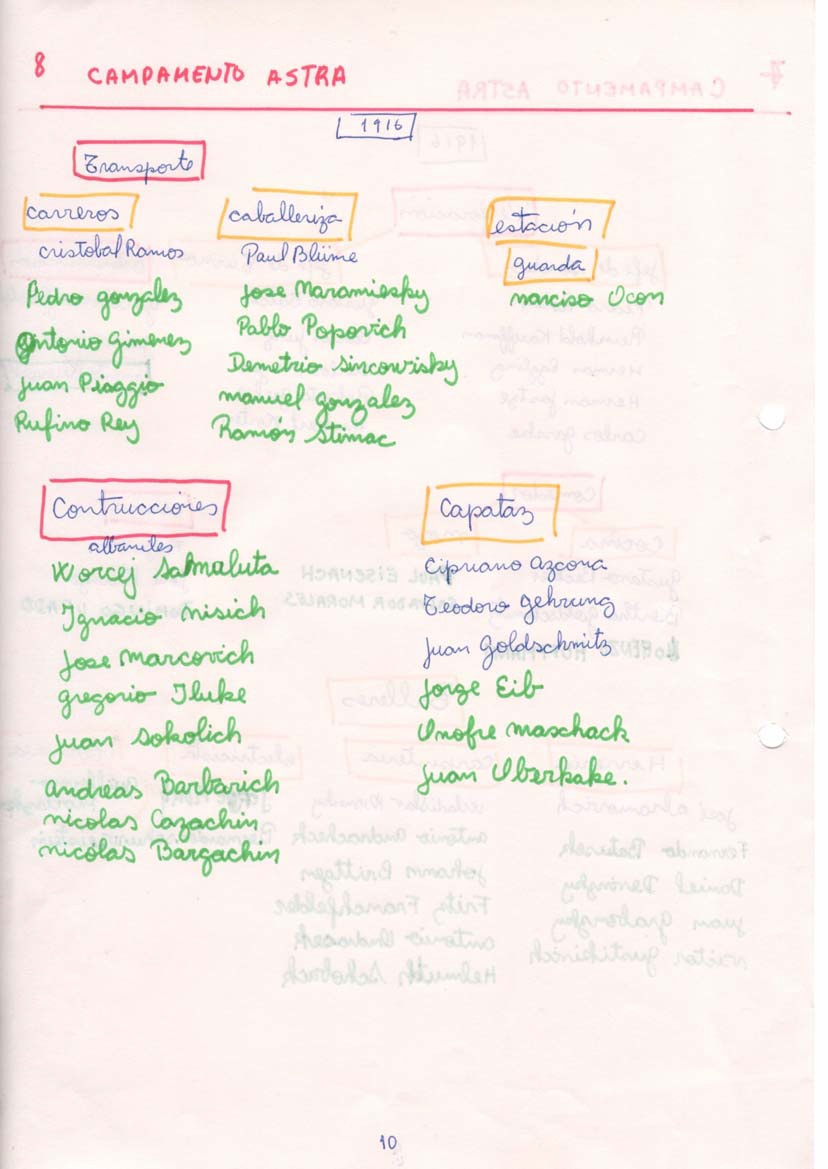 8 CAMPAMENTO ASTRA
1916
Transporte
carreros
cristobal Ramos
Pedro gonzalez
Antonio Gimenez
Juan Piaggio
Rufino Rey
caballeriza
Paul Blüme
Jose Maramiesky
Pablo Popovich
Demetrio Sincowisky
manuel gonzalez
Ramón Stimac
estación
guarda
narciso Ocon
Contrucciones
albaniles
Worcej Salmaluta
Ignacio nisich
Jose marcovich
gregorio Iluke
Juan Sokolich
andreas Barbarich
nicolas Cazachin
nicolas Bargachin
Capataz
Cipriano azcona
Teodoro gehrung
Juan Goldschmitz
Jorge Eib
Onofre maschack
Juan Uberkake.
10